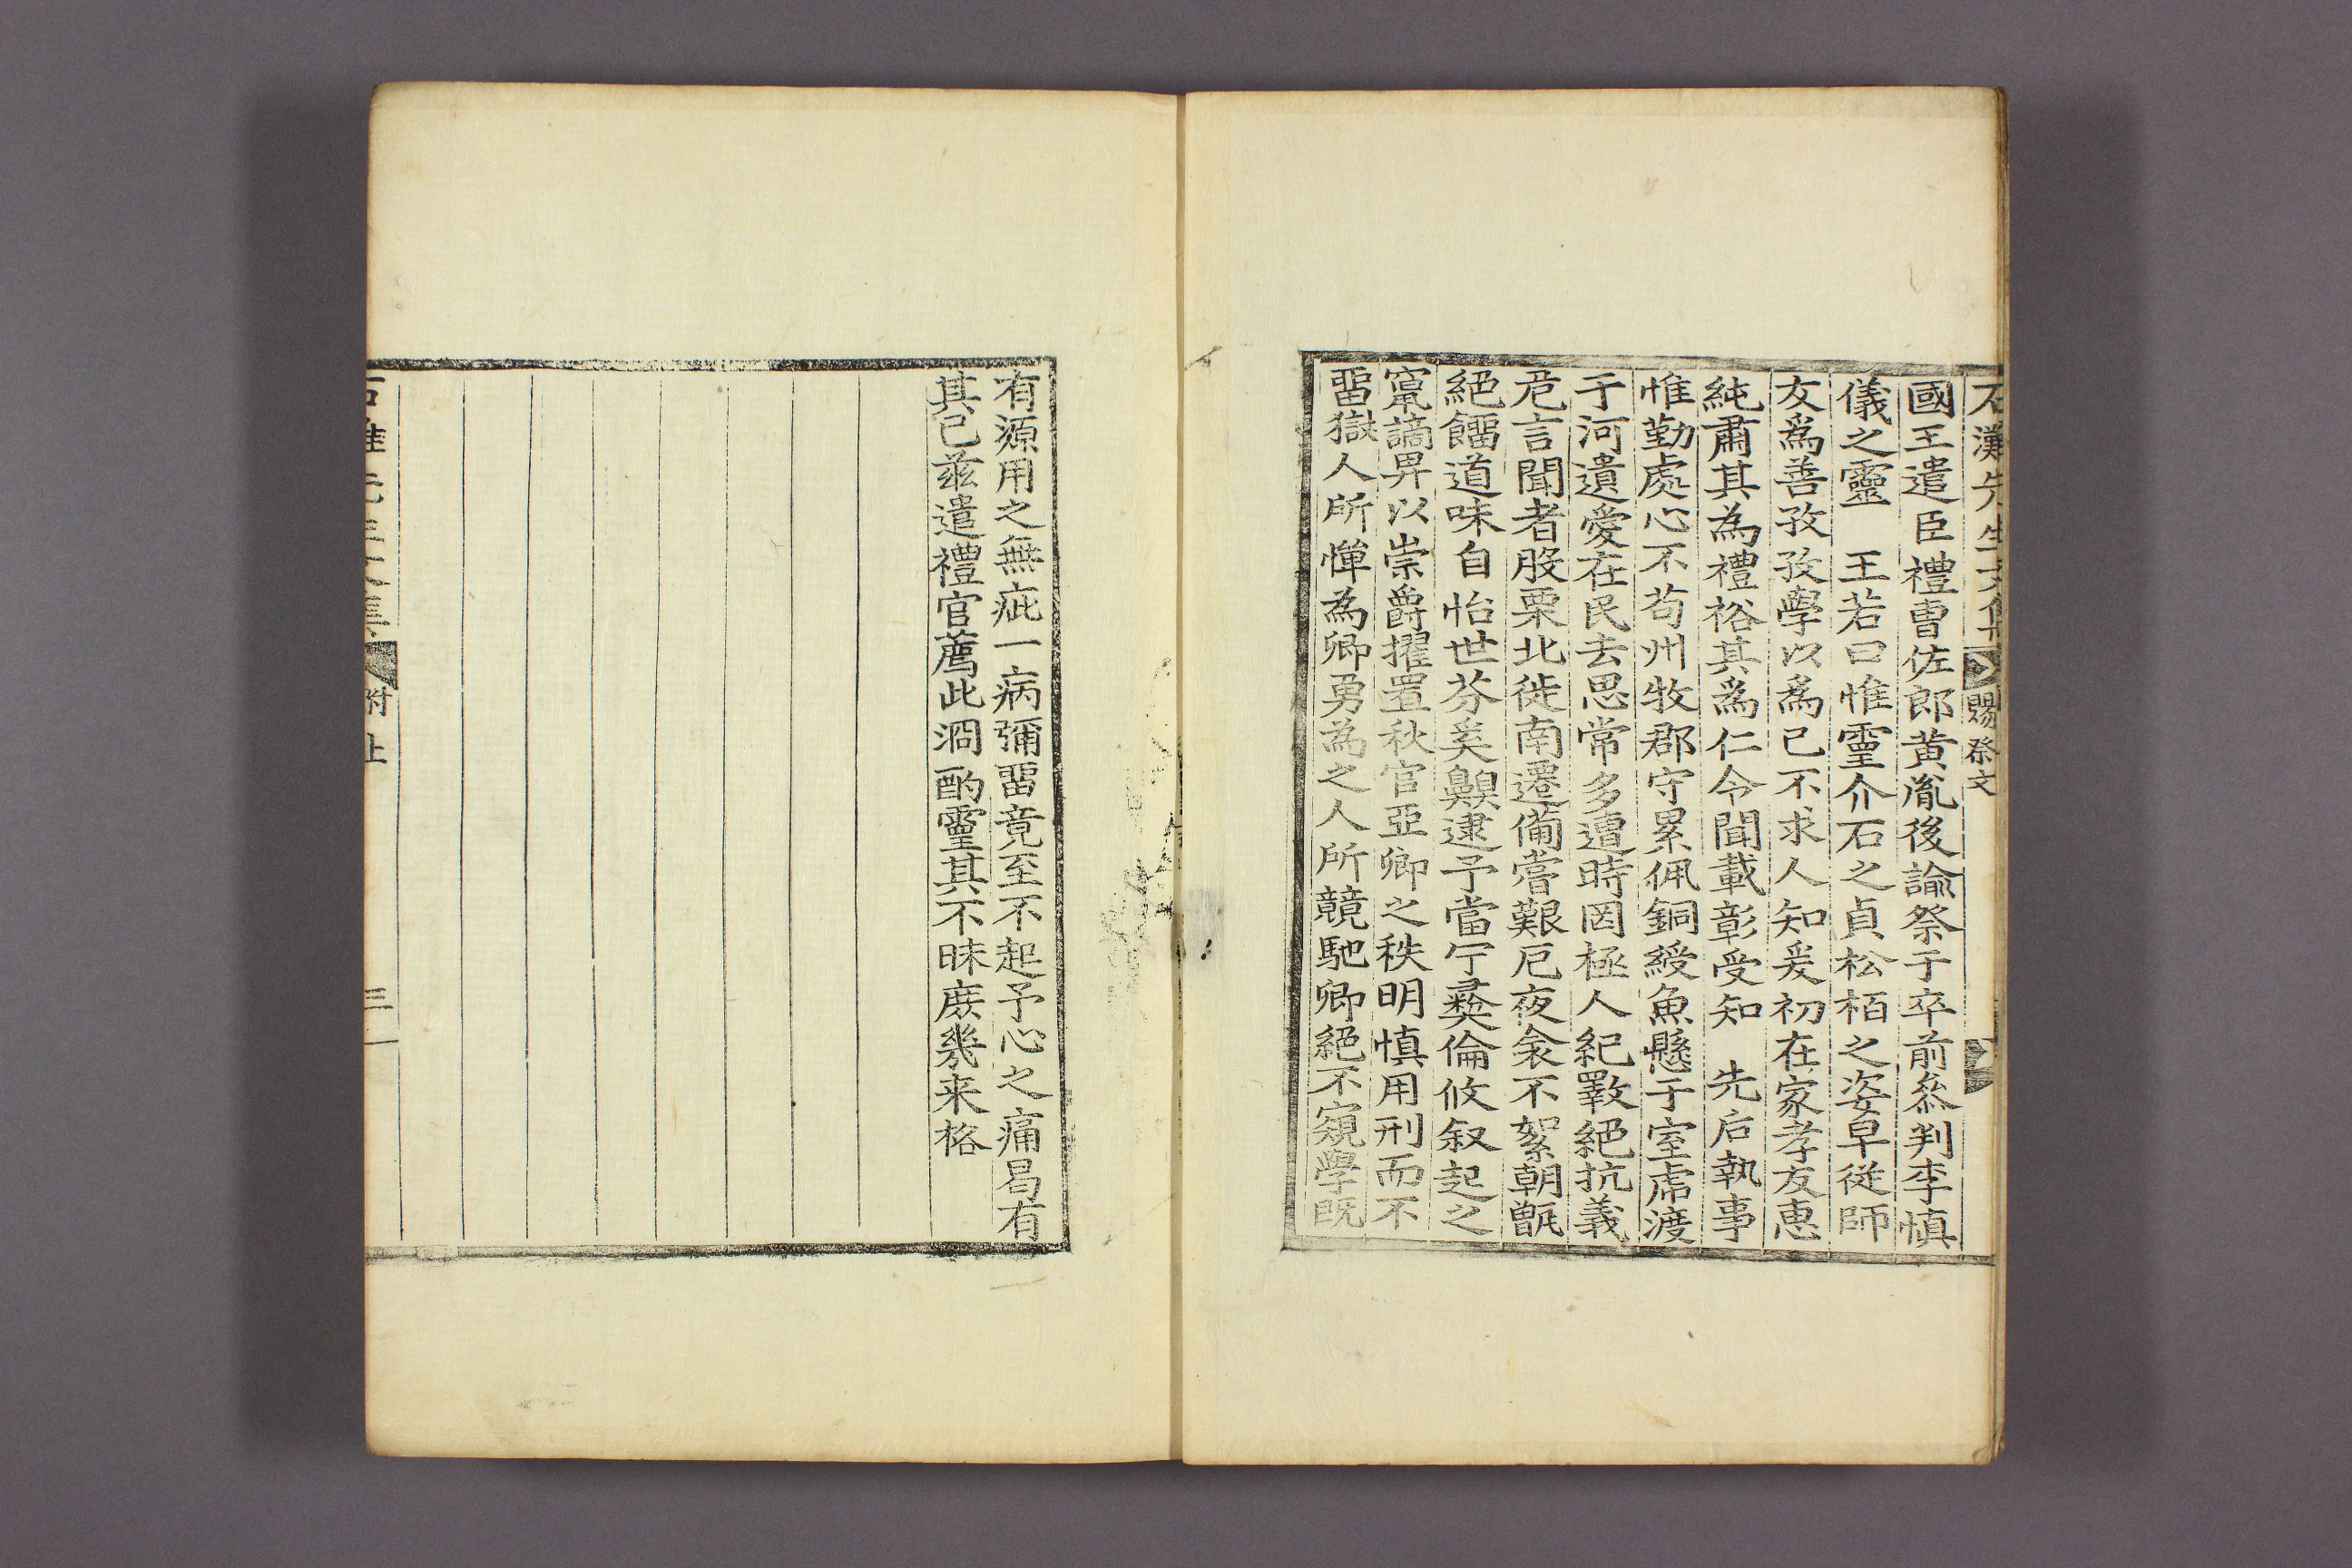 石灘先生文集 賜祭文
國王遣臣禮曹佐郎黄胤後諭祭于卒前叅判李愼
儀之靈 王若曰惟靈介石之貞松栢之姿早從師
友爲善孜孜學以爲己不求人知爰初在家孝友惠
純肅其為禮裕其爲仁令聞載彰受知 先后執事
惟勤處心不苟州牧郡守累佩銅綬魚懸于室虎渡
于河遺愛在民去思常多遭時罔極人紀斁絕抗義
危言聞者股栗北徙南遷備嘗艱厄夜衾不絮朝甑
絕餾道味自怡世芬奚齅逮予當宁彛倫攸叙起之
竄謫畀以崇爵擢置秋官亞卿之秩明愼用刑而不
畱獄人所憚為卿勇為之人所競馳卿絕不窺學旣
有源用之無疵一病彌畱竟至不起予心之痛曷有
其已茲遣禮官薦此泂酌靈其不昧庶幾来格
附上 三